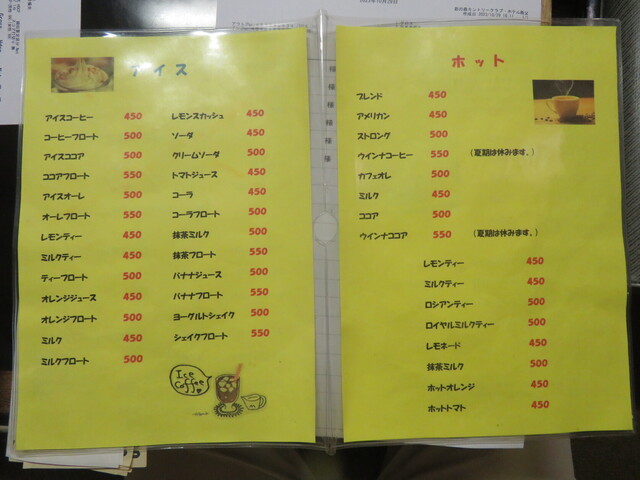 アイス
アイスコーヒー 450
コーヒーフロート 500
アイスココア 500
ココアフロート 550
アイスオーレ 500
オーレフロート 550
レモンティー 450
ミルクティー 450
ティーフロート 500
オレンジジュース 450
オレンジフロート 500
ミルク 450
ミルクフロート 500
レモンスカッシュ 450
ソーダ 450
クリームソーダ 500
トマトジュース 450
コーラ 450
コーラフロート 500
抹茶ミルク 500
抹茶フロート 550
バナナジュース 500
バナナフロート 550
ヨーグルトシェイク 500
シェイクフロート 550
Ice
Coffee
ホット
ブレンド 450
アメリカン 450
ストロング 500
ウインナコーヒー 550 (夏期は休みます。)
カフェオレ 500
ミルク 450
ココア 500
ウインナココア 550 (夏期は休みます。)
レモンティー 450
ミルクティー 450
ロシアンティー 500
ロイヤルミルクティー 500
レモネード 450
抹茶ミルク 500
ホットオレンジ 450
ホットトマト 450
様
様
様
様
様
様